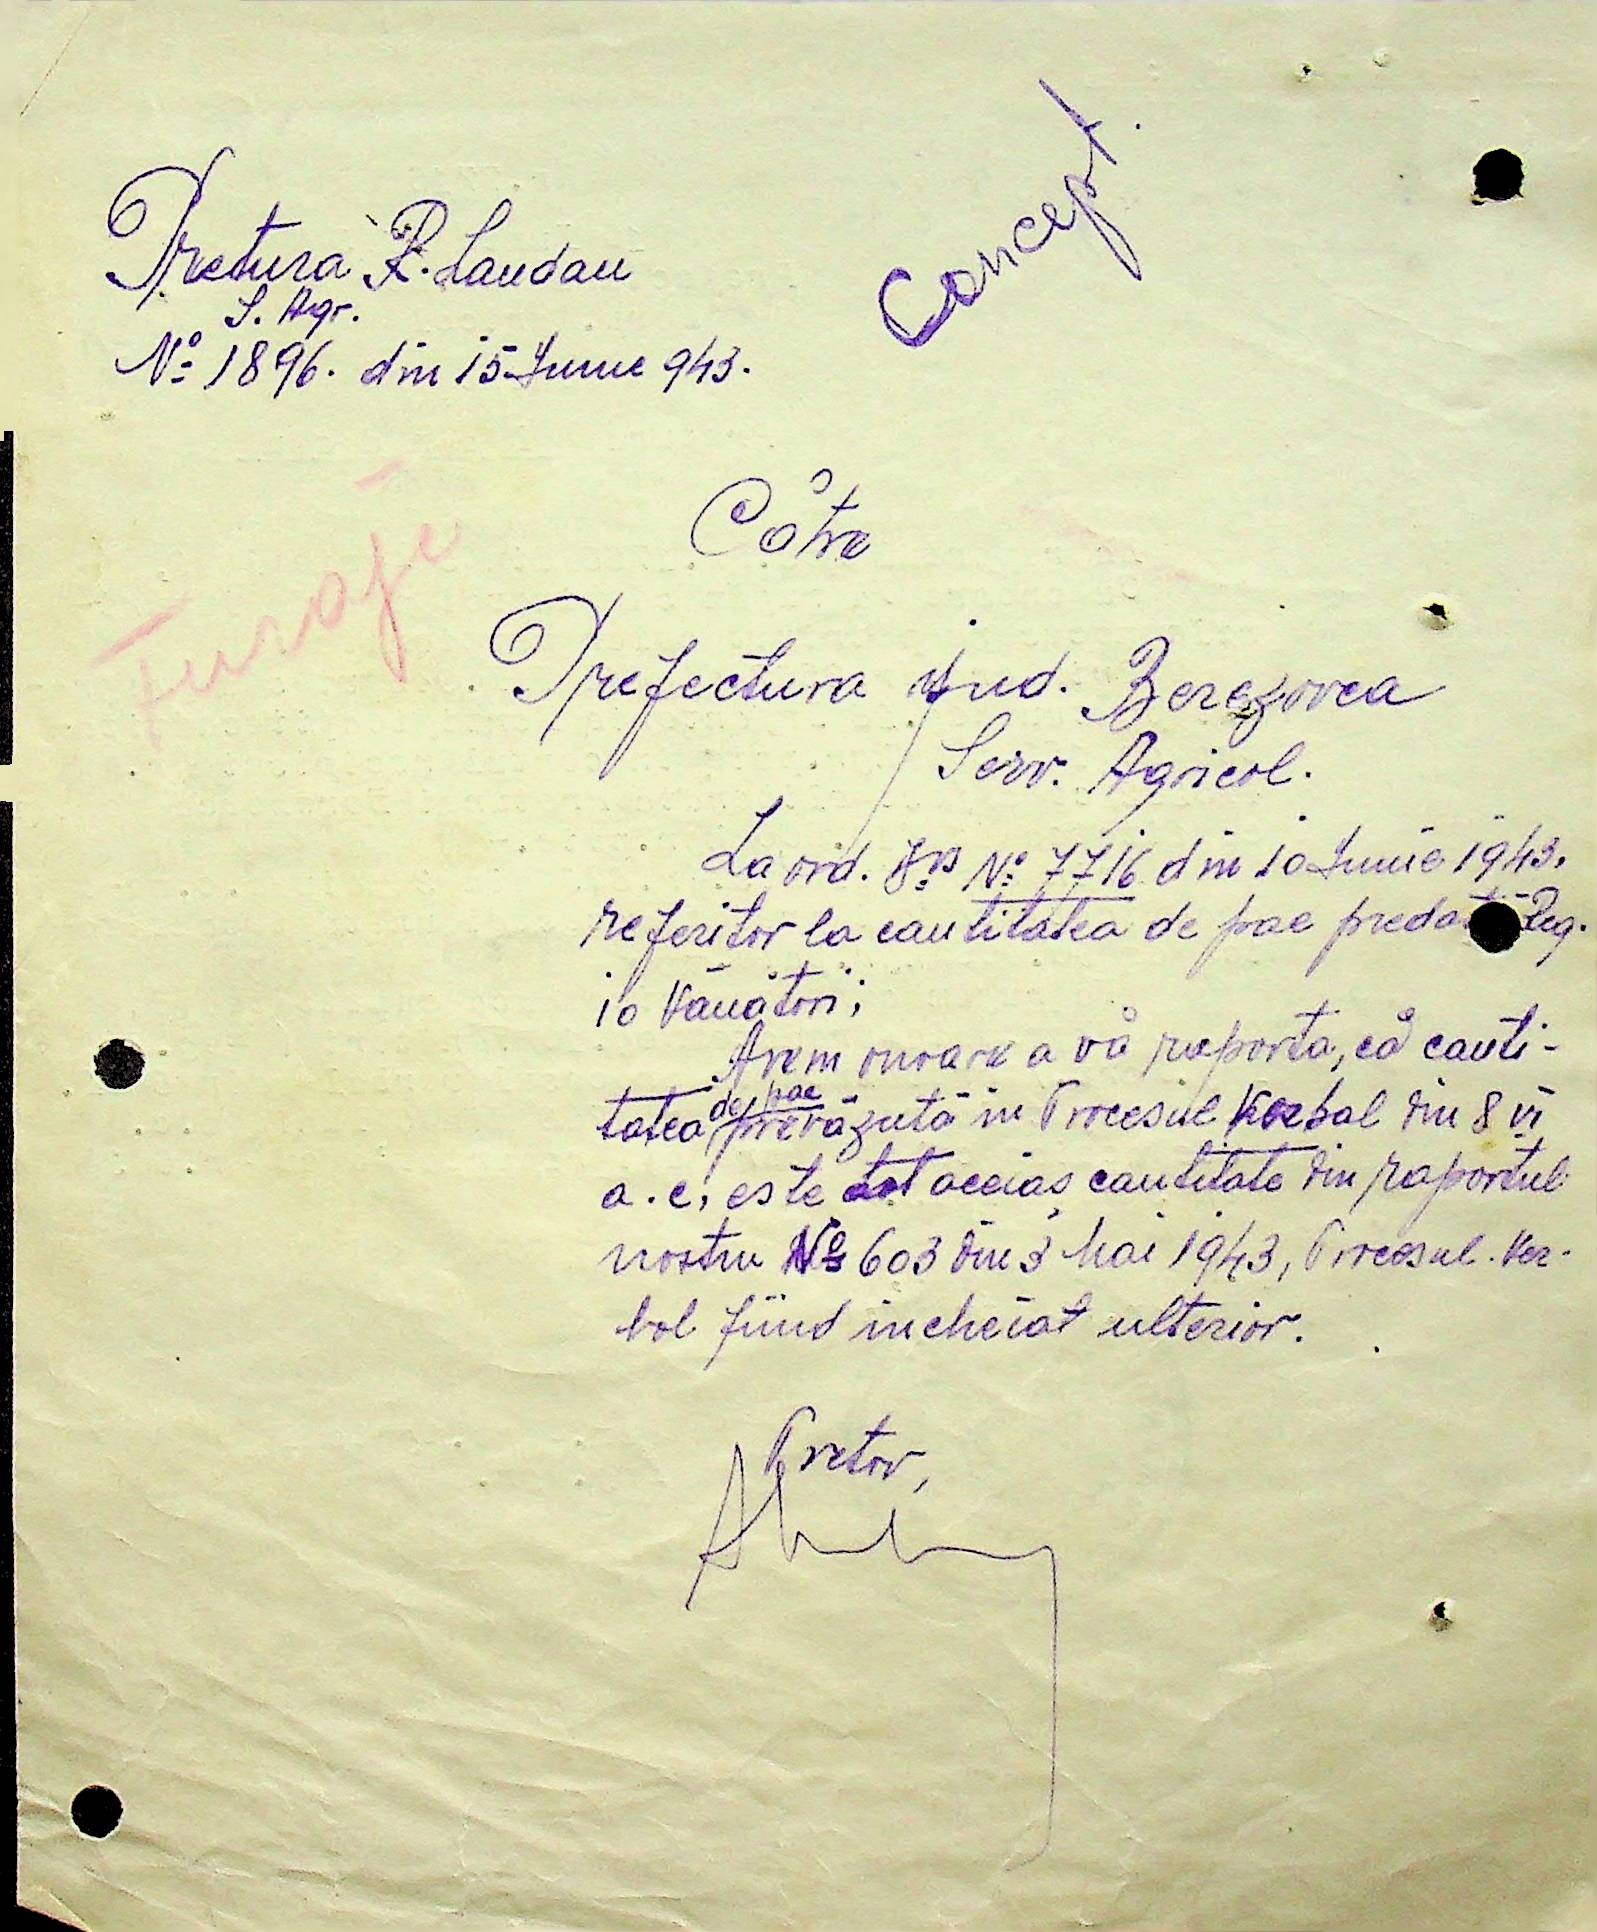 Concept.
Pretura R. Landau
S. Agr.
Nº 1896. din 15 Iunie 943.
Furaje
Către
Prefectura Jud. Berezovca
Serv. Agricol.
La ord. Dvs Nº 7716 din 10 Iunie 1943.
referitor la cantitatea de pae predată Reg.
10 Vânători;
Avem onoare a vă raporta, că canti-
tatea de pae prevăzută în Procesul Verbal din 8 VI
a.c. este tot aceiaș cantitate din raportul
nostru Nº 603 din 3 Mai 1943, Procesul Ver-
bal fiind incheiat ulterior.
Pretor,